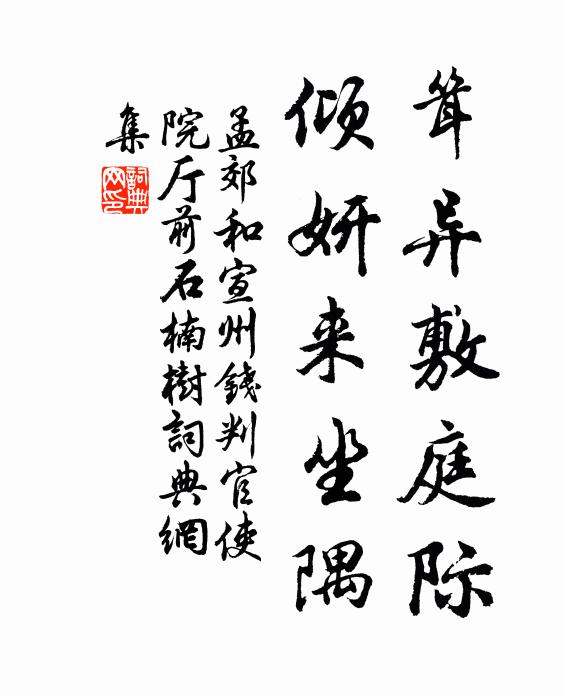 耸异敷庭际
倾妍来坐隅
孟郊和宣州錢判官使
院厅前石楠樹詞典網
集
詞典
网印